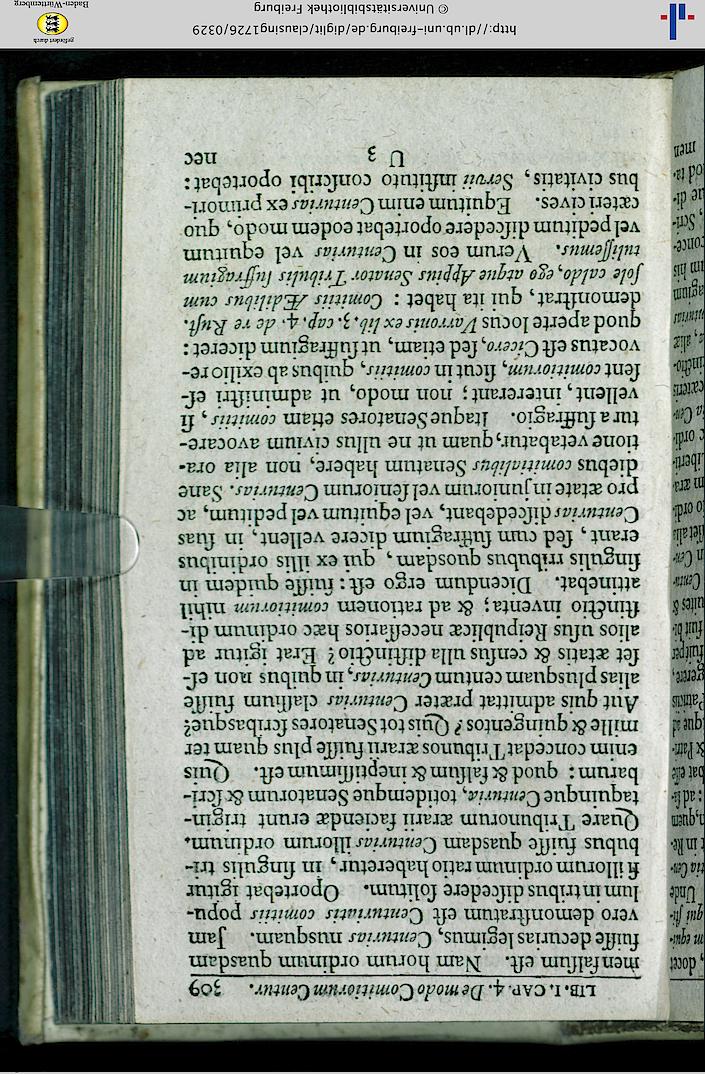 LIB. I. CAP. 4. De modo Comitiorum Centur. 309
men falſum eſt. Nam horum ordinum quasdam
fuiſſe decurias legimus, Centurias nusquam. Jam
vero demonſtratum eſt Centuriatis comitiis popu-
lum in tribus diſcedere ſolitum. Oportebat igitur
ſi illorum ordinum ratio haberetur, in ſingulis tri-
bubus fuiſſe quasdam Centurias illorum ordinum.
Quare Tribunorum ærarii faciendæ erunt trigin-
taquinque Centuriæ, totidemque Senatorum & ſcri-
barum: quod & falſum & ineptiſſimum eſt. Quis
enim concedat Tribunos ærarii fuiſſe plus quam ter
mille & quingentos? Quis tot Senatores ſcribasque?
Aut quis admittat præter Centurias claſſium fuiſſe
alias plusquam centum Centurias, in quibus non eſ-
ſet ætatis & cenſus ulla diſtinctio? Erat igitur ad
alios uſus Reipublicæ neceſſarios hæc ordinum di-
ſtinctio inventa; & ad rationem comitiorum nihil
attinebat. Dicendum ergo eſt: fuiſſe quidem in
ſingulis tribubus quosdam, qui ex illis ordinibus
erant, ſed cum ſuffragium dicere vellent, in ſuas
Centurias diſcedebant, vel equitum vel peditum, ac
pro ætate in juniorum vel ſeniorum Centurias. Sane
diebus comitialibus Senatum habere, non alia ora-
tione vetabatur, quam ut ne ullus civium avocare-
tur a ſuffragio. Itaque Senatores etiam comitiis, ſi
vellent, intererant; non modo, ut adminiſtri eſ-
ſent comitiorum, ſicut in comitiis, quibus ab exilio re-
vocatus eſt Cicero, ſed etiam, ut ſuffragium diceret:
quod aperte locus Varronis ex lib. 3. cap. 4. de re Ruſt.
demonſtrat, qui ita habet: Comitiis Ædilibus cum
ſole caldo, ego atque Appius Senator Tribulis ſuffragium
tuliſſemus. Verum eos in Centurias vel equitum
vel peditum diſcedere oportebat eodem modo, quo
cæteri cives. Equitum enim Centurias ex primori-
bus civitatis, Servii inſtituto conſcribi oportebat:
U 3 nec
http://dl.ub.uni-freiburg.de/diglit/clausing1726/0329
© Universitätsbibliothek Freiburg
gefördert durch
Baden-Württemberg